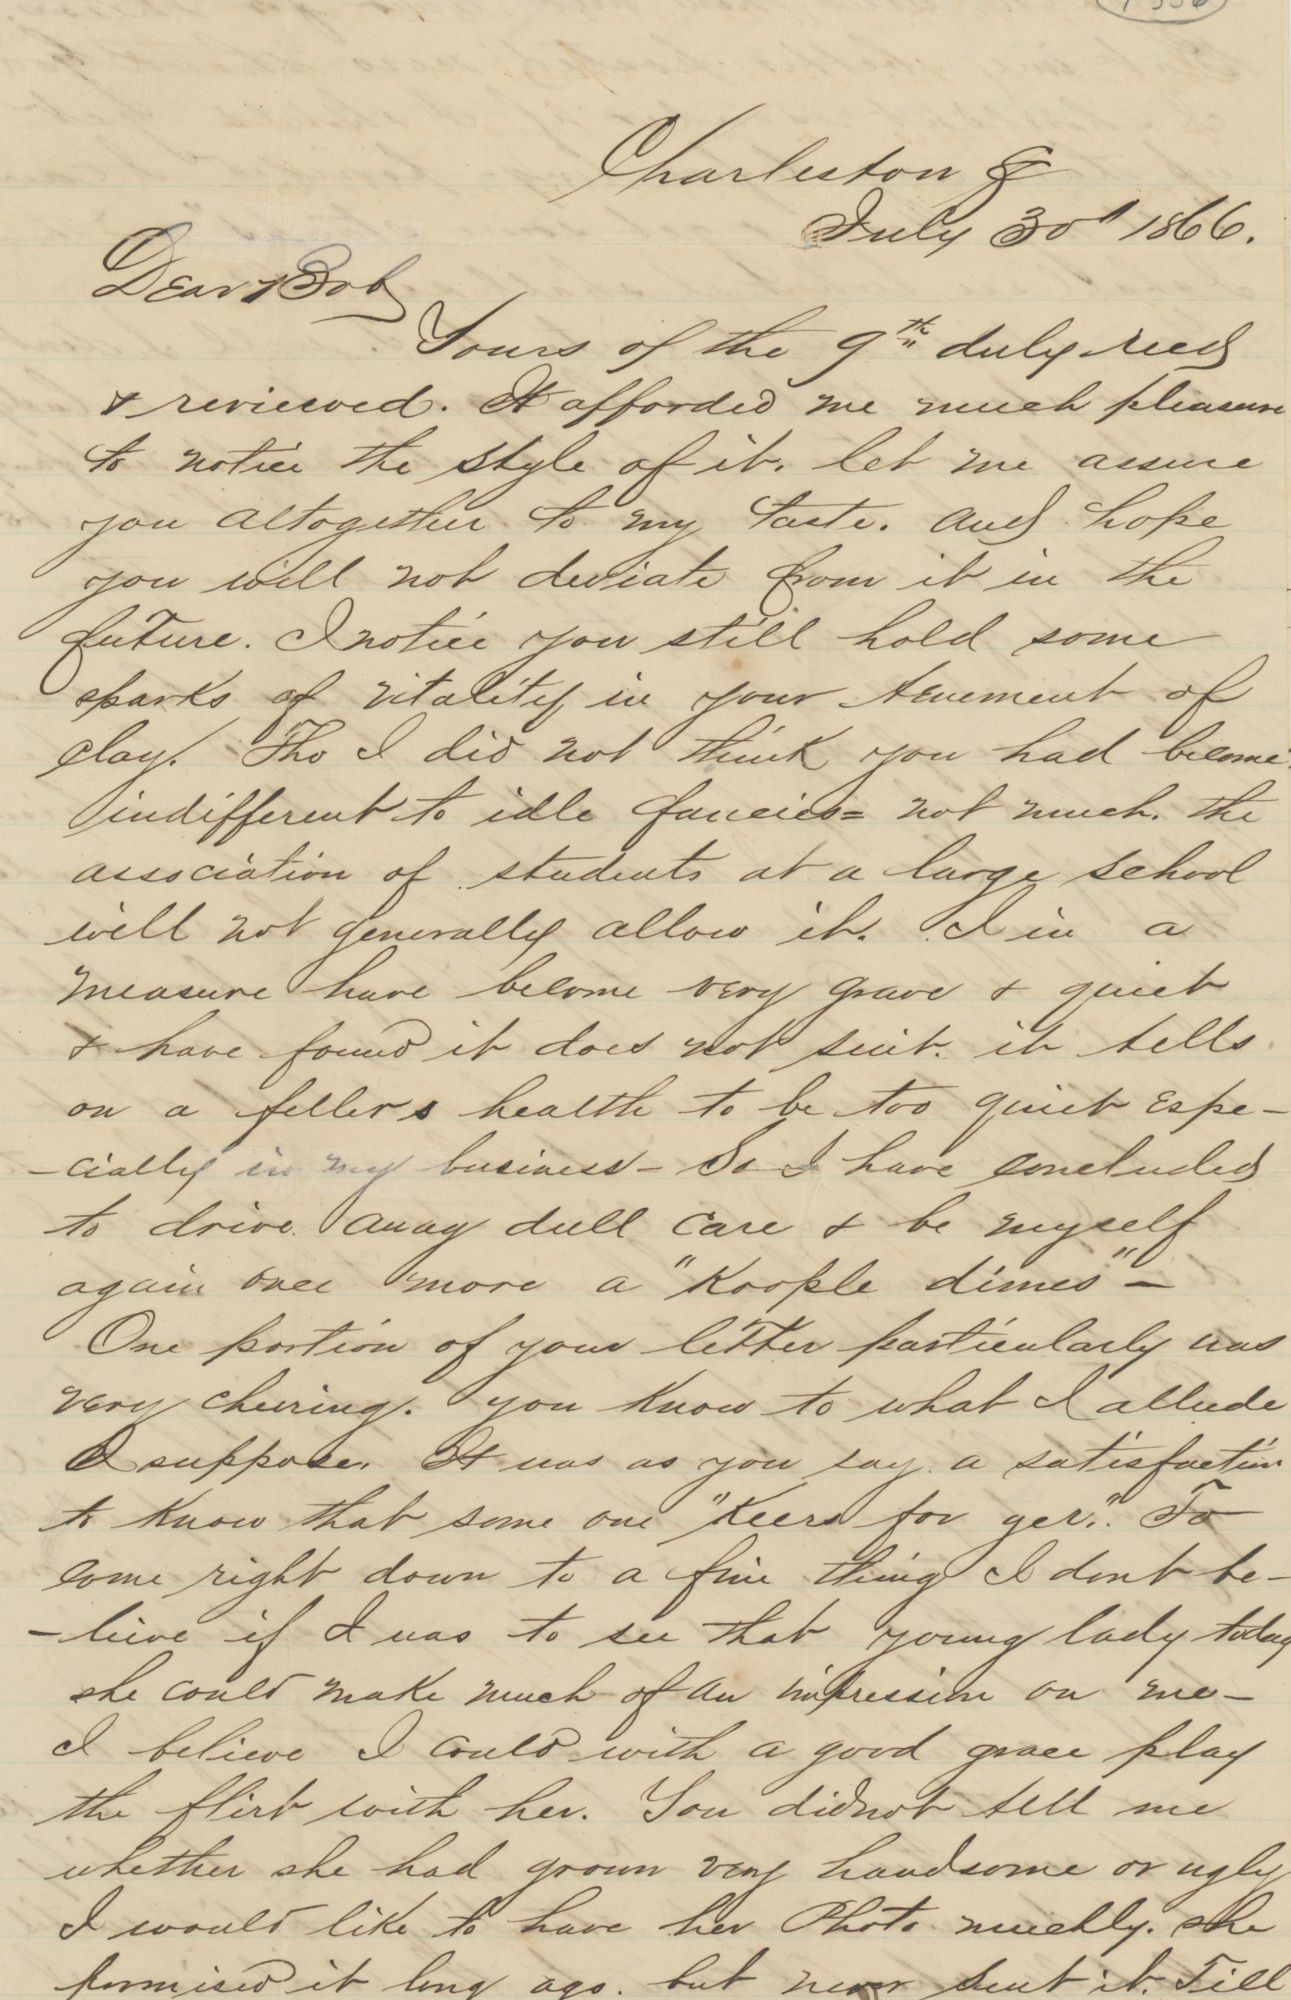 Charleston
July 30th 1866.
Dear Bob
Yours of the 9th duly recd
& reviewed. It afforded me much pleasure
to notice the style of it. let me assure
you altogether to my taste. and hope
you will not deviate from it in the
future. I notice you still hold some
sparks of vitality in your tenement of
clay. Tho I did not think you had become
indifferent to idle fancies= not much. the
association of students at a large school
will not generally allow it. I in a
measure have become very grave & quiet
& have found it does not suit. it tells
on a fellers health to be too quiet Espe-
-cially in my business- So I have concluded
to drive away dull care & be myself
again once more a "Koople dimes"-
One portion of your letter particularly was
very cheering. you know to what I allude
I suppose. It was as you say a satisfaction
to know that some one "Keers for yer." To
come right down to a fine thing I dont be-
-lieve if I was to see that young lady today
she could make much of an impression on me-
I believe I could with a good grace play
the flirt with her. You didnot tell me
whether she had grown very handsome or ugly
I would like to have her Photo muchly. she
promised it long ago. but never sent it. Till